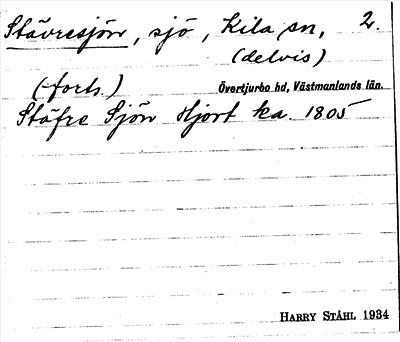 Stävresjön, sjö, Kila sn, 2.
(delvis)
(-forts.)
Övertjurbo hd, Västmanlands län.
Stäfre Sjön Hjort ka. 1805
HARRY STÅHL 1934